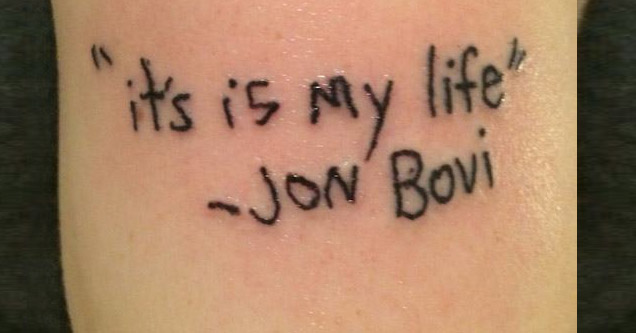 "it's is my life"
-JON BOVI